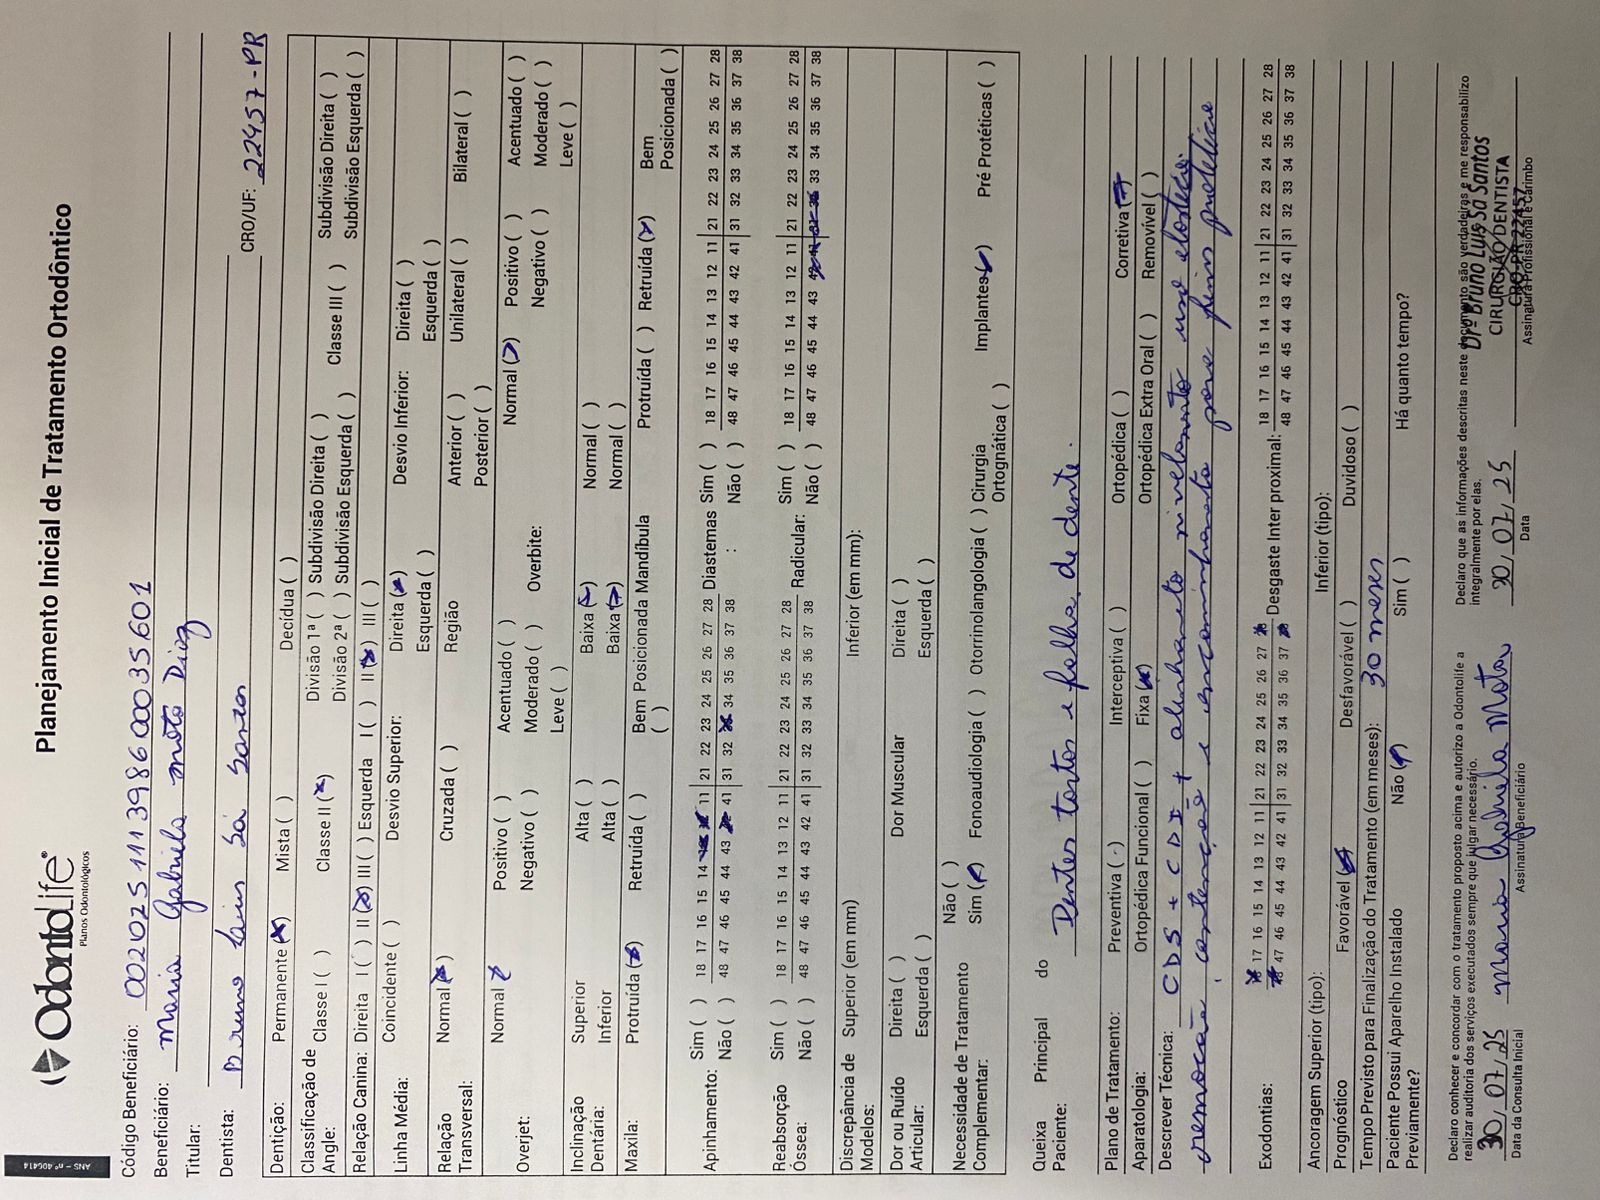 ANS - nº 406414
OdontoLife
Planos Odontológicos
Planejamento Inicial de Tratamento Ortodôntico
Código Beneficiário: 0020251113986000035601
Beneficiário: Maria Gabriela mota Diaz
Titular:
Dentista: Bruno Luis Sá Santos CRO/UF: 22457-PR
Dentição: Permanente (x) Mista ( ) Decídua ( )
Classificação de Angle: Classe I ( ) Classe II (x) Divisão 1ª ( ) Subdivisão Direita ( ) Classe III ( ) Subdivisão Direita ( )
Divisão 2ª ( ) Subdivisão Esquerda ( ) Subdivisão Esquerda ( )
Relação Canina: Direita I ( ) II (x) III ( ) Esquerda I ( ) II (x) III ( )
Linha Média: Coincidente ( ) Desvio Superior: Direita (x) Desvio Inferior: Direita ( )
Esquerda ( ) Esquerda ( )
Relação Transversal: Normal (x) Cruzada ( ) Região Anterior ( ) Unilateral ( ) Bilateral ( )
Posterior ( )
Overjet: Normal Positivo ( ) Acentuado ( ) Overbite: Normal ( ) Positivo ( ) Acentuado ( )
Negativo ( ) Moderado ( ) Negativo ( ) Moderado ( )
Leve ( ) Leve ( )
Inclinação Dentária: Superior Alta ( ) Baixa (x) Normal ( )
Inferior Alta ( ) Baixa (x) Normal ( )
Maxila: Protruída (x) Retruída ( ) Bem Posicionada ( ) Mandíbula Protruída ( ) Retruída (x) Bem Posicionada ( )
Apinhamento: Sim ( ) 18 17 16 15 14 11 21 22 23 24 25 26 27 28 Diastemas : Sim ( ) 18 17 16 15 14 13 12 11 21 22 23 24 25 26 27 28
Não ( ) 48 47 46 45 44 43 41 31 32 34 35 36 37 38 Não ( ) 48 47 46 45 44 43 42 41 31 32 33 34 35 36 37 38
Reabsorção Óssea: Sim ( ) 18 17 16 15 14 13 12 11 21 22 23 24 25 26 27 28 Radicular: Sim ( ) 18 17 16 15 14 13 12 11 21 22 23 24 25 26 27 28
Não ( ) 48 47 46 45 44 43 42 41 31 32 33 34 35 36 37 38 Não ( ) 48 47 46 45 44 43 33 34 35 36 37 38
Discrepância de Modelos: Superior (em mm) Inferior (em mm):
Dor ou Ruído Articular: Direita ( ) Dor Muscular Direita ( )
Esquerda ( ) Esquerda ( )
Necessidade de Tratamento Complementar: Não ( )
Sim (x) Fonoaudiologia ( ) Otorrinolangologia ( ) Cirurgia Ortognática ( ) Implantes (x) Pré Protéticas ( )
Queixa Principal do Paciente: Dentes tortos e falha de dente.
Plano de Tratamento: Preventiva ( ) Interceptiva ( ) Ortopédica ( ) Corretiva (x)
Aparatologia: Ortopédica Funcional ( ) Fixa (x) Ortopédica Extra Oral ( ) Removível ( )
Descrever Técnica: CDS + CDI + alinhamento nivelamento uso elastico
remocao, contenção e encaminhamento para fins protetico
Exodontias: 17 16 15 14 13 12 11 21 22 23 24 25 26 27 Desgaste Inter proximal: 18 17 16 15 14 13 12 11 21 22 23 24 25 26 27 28
47 46 45 44 43 42 41 31 32 33 34 35 36 37 48 47 46 45 44 43 42 41 31 32 33 34 35 36 37 38
Ancoragem Superior (tipo): Inferior (tipo):
Prognóstico Favorável (x) Desfavorável ( ) Duvidoso ( )
Tempo Previsto para Finalização do Tratamento (em meses): 30 meses
Paciente Possui Aparelho Instalado Previamente? Não (x) Sim ( ) Há quanto tempo?
Declaro conhecer e concordar com o tratamento proposto acima e autorizo a Odontolife a
realizar auditoria dos serviços executados sempre que julgar necessário.
30/07/25 Maria Gabriela Mota
Data da Consulta Inicial Assinatura Beneficiário
Declaro que as informações descritas neste documento são verdadeiras e me responsabilizo
integralmente por elas.
30/07/25
Data
Drº Bruno Luis Sá Santos
CIRURGIÃO DENTISTA
CRO-PR 22457
Assinatura Profissional e Carimbo